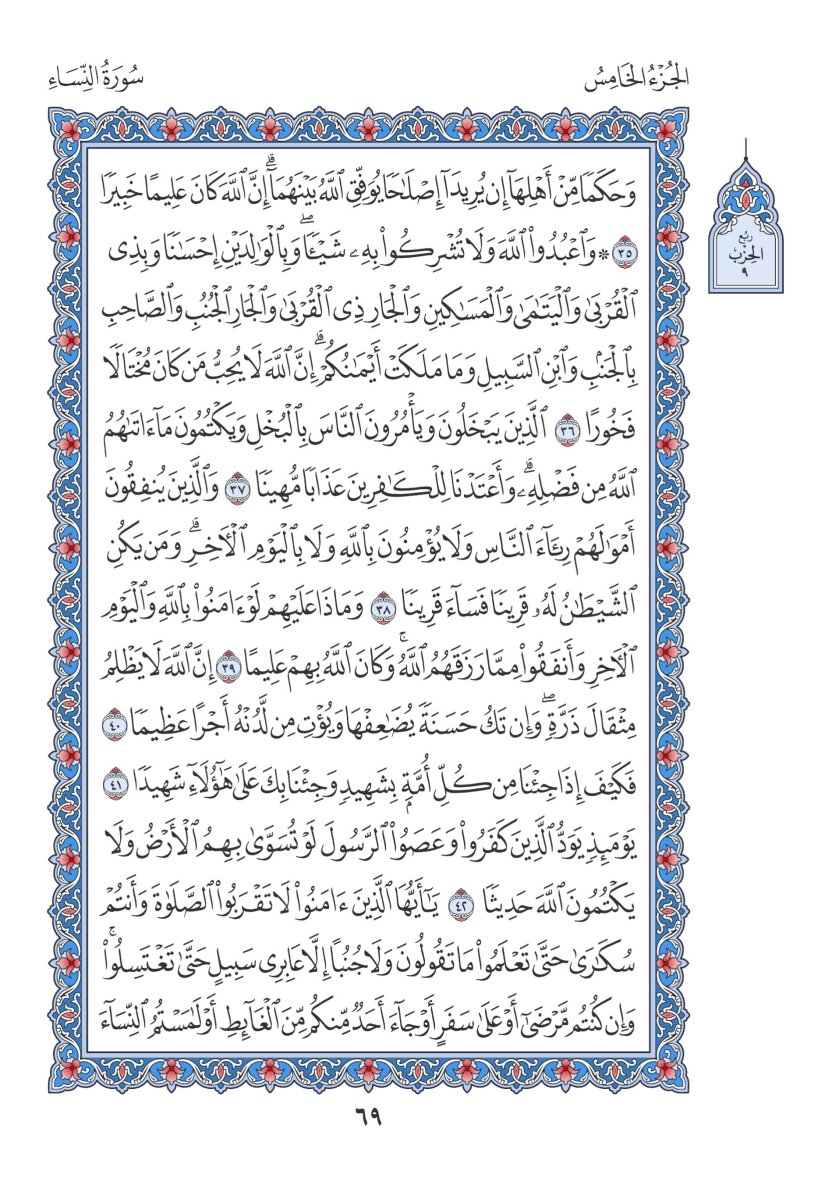 الجُزْءُ الخَامِسُ
سُورَةُ النِّسَاءِ
وَحَكَمٗا مِّنۡ أَهۡلِهَآ إِن يُرِيدَآ إِصۡلَٰحٗا يُوَفِّقِ ٱللَّهُ بَيۡنَهُمَآۗ إِنَّ ٱللَّهَ كَانَ عَلِيمًا خَبِيرٗا
٣٥ * وَٱعۡبُدُواْ ٱللَّهَ وَلَا تُشۡرِكُواْ بِهِۦ شَيۡـٔٗاۖ وَبِٱلۡوَٰلِدَيۡنِ إِحۡسَٰنٗا وَبِذِي
ٱلۡقُرۡبَىٰ وَٱلۡيَتَٰمَىٰ وَٱلۡمَسَٰكِينِ وَٱلۡجَارِ ذِي ٱلۡقُرۡبَىٰ وَٱلۡجَارِ ٱلۡجُنُبِ وَٱلصَّاحِبِ
بِٱلۡجَنۢبِ وَٱبۡنِ ٱلسَّبِيلِ وَمَا مَلَكَتۡ أَيۡمَٰنُكُمۡۗ إِنَّ ٱللَّهَ لَا يُحِبُّ مَن كَانَ مُخۡتَالٗا
فَخُورًا ٣٦ ٱلَّذِينَ يَبۡخَلُونَ وَيَأۡمُرُونَ ٱلنَّاسَ بِٱلۡبُخۡلِ وَيَكۡتُمُونَ مَآ ءَاتَىٰهُمُ
ٱللَّهُ مِن فَضۡلِهِۦۗ وَأَعۡتَدۡنَا لِلۡكَٰفِرِينَ عَذَابٗا مُّهِينٗا ٣٧ وَٱلَّذِينَ يُنفِقُونَ
أَمۡوَٰلَهُمۡ رِئَآءَ ٱلنَّاسِ وَلَا يُؤۡمِنُونَ بِٱللَّهِ وَلَا بِٱلۡيَوۡمِ ٱلۡأٓخِرِۗ وَمَن يَكُنِ
ٱلشَّيۡطَٰنُ لَهُۥ قَرِينٗا فَسَآءَ قَرِينٗا ٣٨ وَمَاذَا عَلَيۡهِمۡ لَوۡ ءَامَنُواْ بِٱللَّهِ وَٱلۡيَوۡمِ
ٱلۡأٓخِرِ وَأَنفَقُواْ مِمَّا رَزَقَهُمُ ٱللَّهُۚ وَكَانَ ٱللَّهُ بِهِمۡ عَلِيمًا ٣٩ إِنَّ ٱللَّهَ لَا يَظۡلِمُ
مِثۡقَالَ ذَرَّةٖۖ وَإِن تَكُ حَسَنَةٗ يُضَٰعِفۡهَا وَيُؤۡتِ مِن لَّدُنۡهُ أَجۡرًا عَظِيمٗا ٤٠
فَكَيۡفَ إِذَا جِئۡنَا مِن كُلِّ أُمَّةِۭ بِشَهِيدٖ وَجِئۡنَا بِكَ عَلَىٰ هَٰٓؤُلَآءِ شَهِيدٗا ٤١
يَوۡمَئِذٖ يَوَدُّ ٱلَّذِينَ كَفَرُواْ وَعَصَوُاْ ٱلرَّسُولَ لَوۡ تُسَوَّىٰ بِهِمُ ٱلۡأَرۡضُ وَلَا
يَكۡتُمُونَ ٱللَّهَ حَدِيثٗا ٤٢ يَٰٓأَيُّهَا ٱلَّذِينَ ءَامَنُواْ لَا تَقۡرَبُواْ ٱلصَّلَوٰةَ وَأَنتُمۡ
سُكَٰرَىٰ حَتَّىٰ تَعۡلَمُواْ مَا تَقُولُونَ وَلَا جُنُبًا إِلَّا عَابِرِي سَبِيلٍ حَتَّىٰ تَغۡتَسِلُواْۚ
وَإِن كُنتُم مَّرۡضَىٰٓ أَوۡ عَلَىٰ سَفَرٍ أَوۡ جَآءَ أَحَدٞ مِّنكُم مِّنَ ٱلۡغَآئِطِ أَوۡ لَٰمَسۡتُمُ ٱلنِّسَآءَ
رُبُع
الحِزْب
٩
٦٩